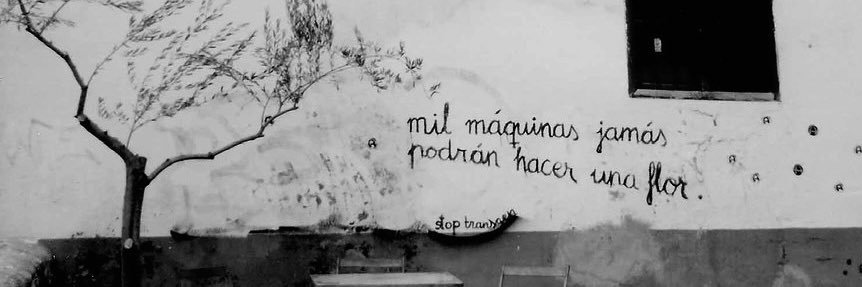 mil máquinas jamás
podrán hacer una flor.
stop